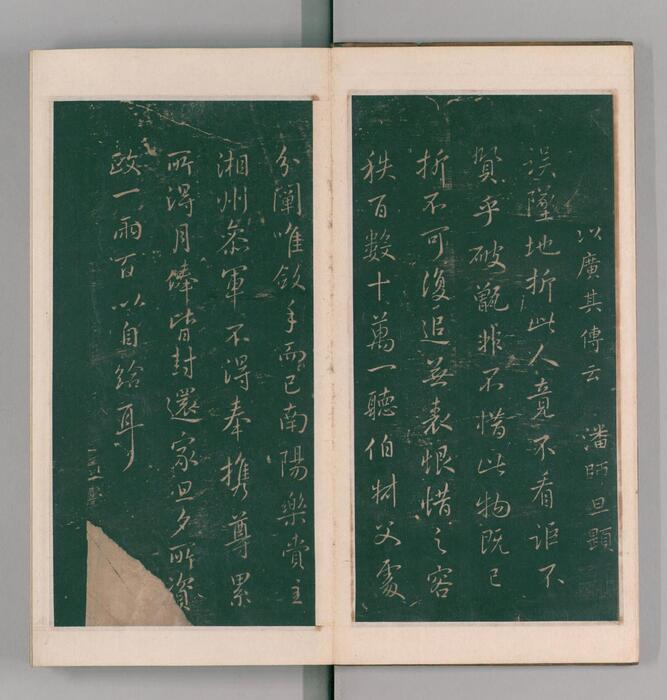 以廣其傳云　潘師旦題
誤墜地折此人竟不看詎不
賢乎破甑非不惜此物既已
折不可復追無表恨惜之容
秩百數十萬一聽伯村父處
分闡唯斂手而已南陽樂賞主
湘州參軍不得奉攜尊累
所得月俸皆封還家旦夕所資
政一兩百以自給耳